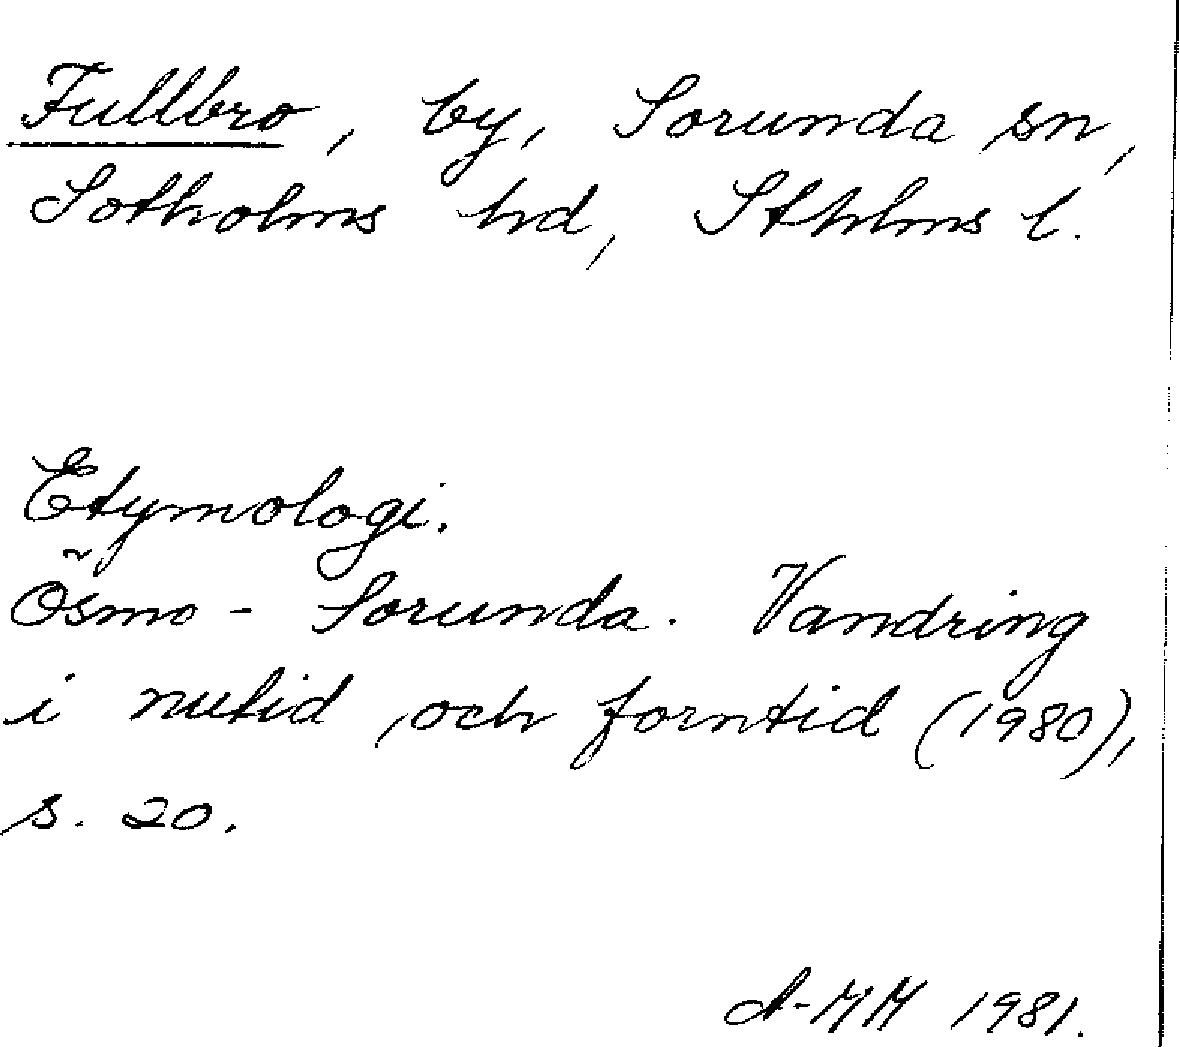 Fullbro, by, Sorunda sn,
Sotholms hd, Sthlms l.
Etymologi.
Ösmo - Sorunda. Vandring
i nutid och forntid (1980),
s. 20.
A-MM 1981.